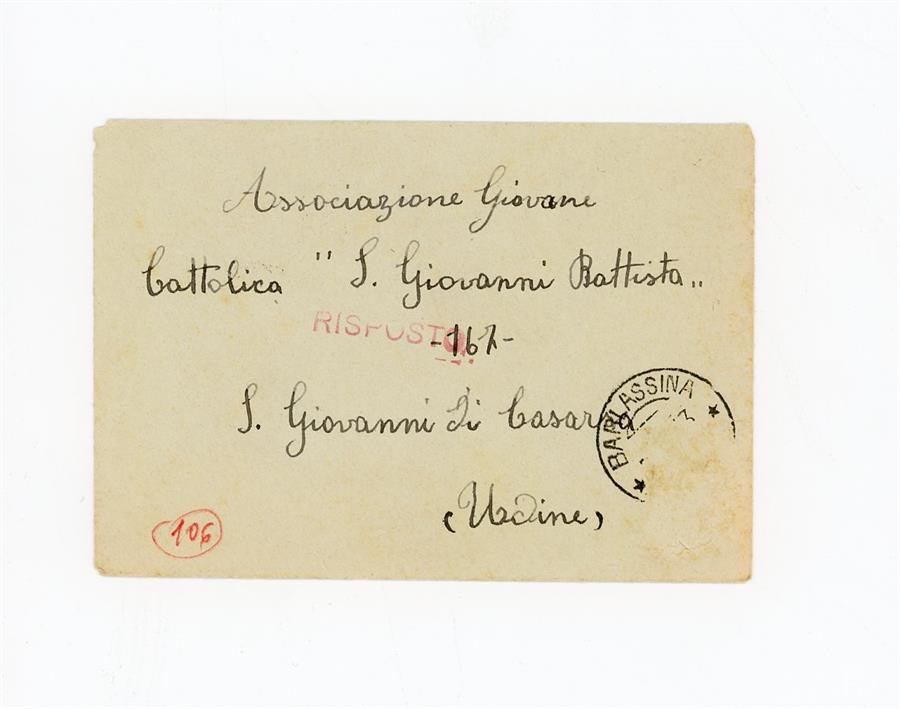 Associazione Giovane
Cattolica " S. Giovanni Battista „
RISPOSTO
-167-
S. Giovanni di Casarsa
BARLASSINA
(Udine)
106